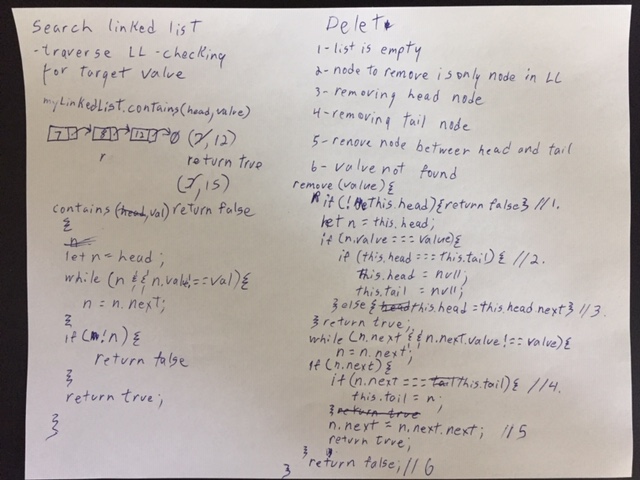 Search linked list
- traverse LL - checking
for target value
myLinkedList.contains(head, value)
7 → 8 → 12 → 0 (7, 12)
return true
(7, 15)
r return false
contains (head, val)
{
let n = head;
while (n && n.value !== val) {
n = n.next;
}
if (!n) {
return false
}
return true;
}
Delete
1 - list is empty
2 - node to remove is only node in LL
3 - removing head node
4 - removing tail node
5 - remove node between head and tail
6 - value not found
remove(value) {
if (!this.head) {return false} //1.
let n = this.head;
if (n.value === value) {
if (this.head === this.tail) { //2.
this.head = null;
this.tail = null;
} else { head this.head = this.head.next } //3.
return true;
}
while (n.next && n.next.value !== value) {
n = n.next;
}
if (n.next) {
if (n.next === tail this.tail) { //4.
this.tail = n;
} return true
n.next = n.next.next; //5
return true;
}
return false; //6
}